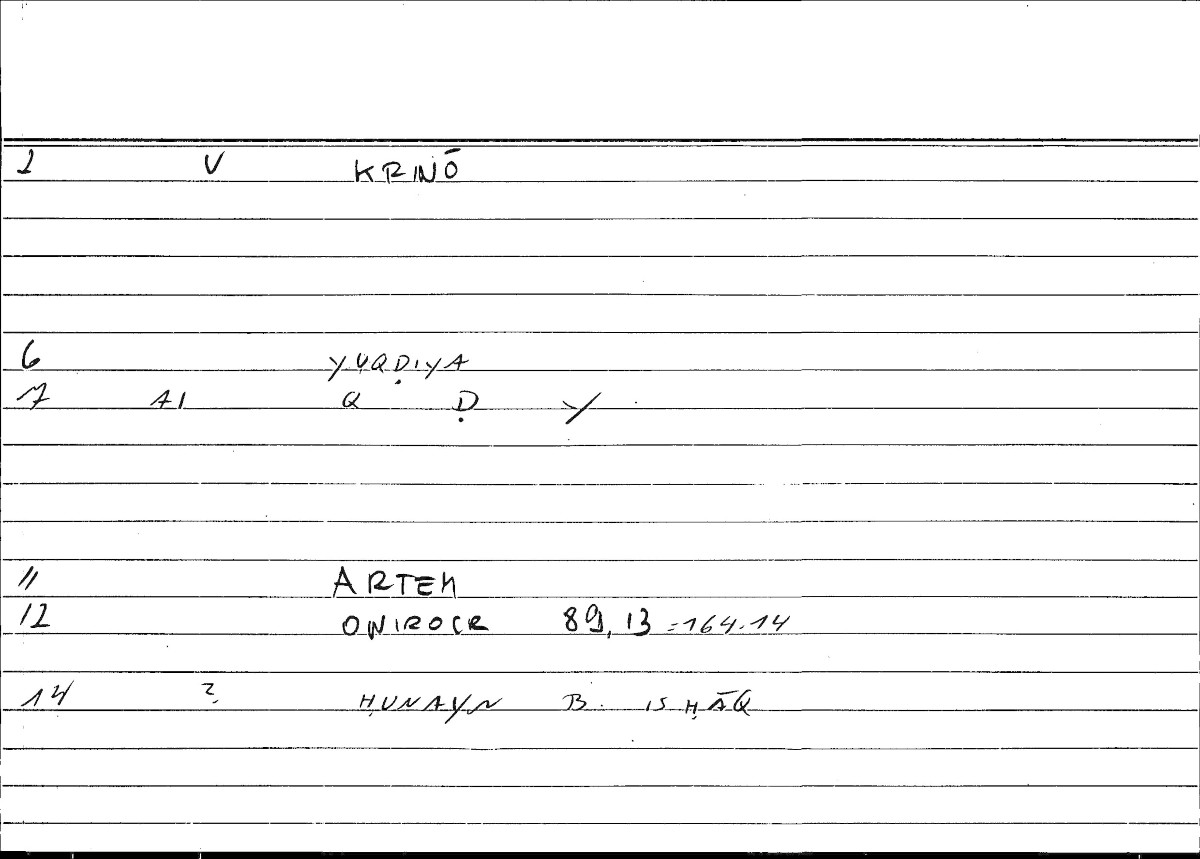 1 V KRINŌ
6 YUQḌIYA
7 A1 Q Ḍ Y
11 ARTEM
12 ONIROCR 89,13 =164.14
14 ? ḤUNAYN B. ISḤĀQ